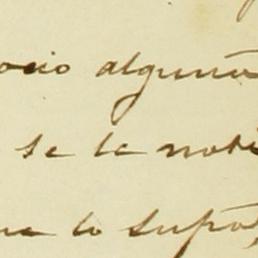 ocio alguna
se le noti
ue lo supo